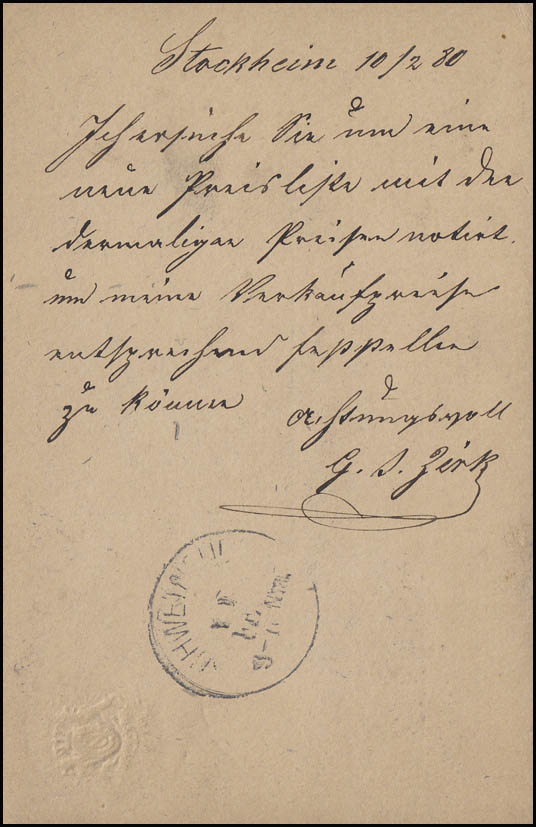 Stockheim 10/2 80
Ich ersuche Sie um eine
neue Preisliste mit den
dermaligen Preisen notirt,
um meine Verkaufspreise
entsprechend feststellen
zu können
Achtungsvoll
G. J. Zink